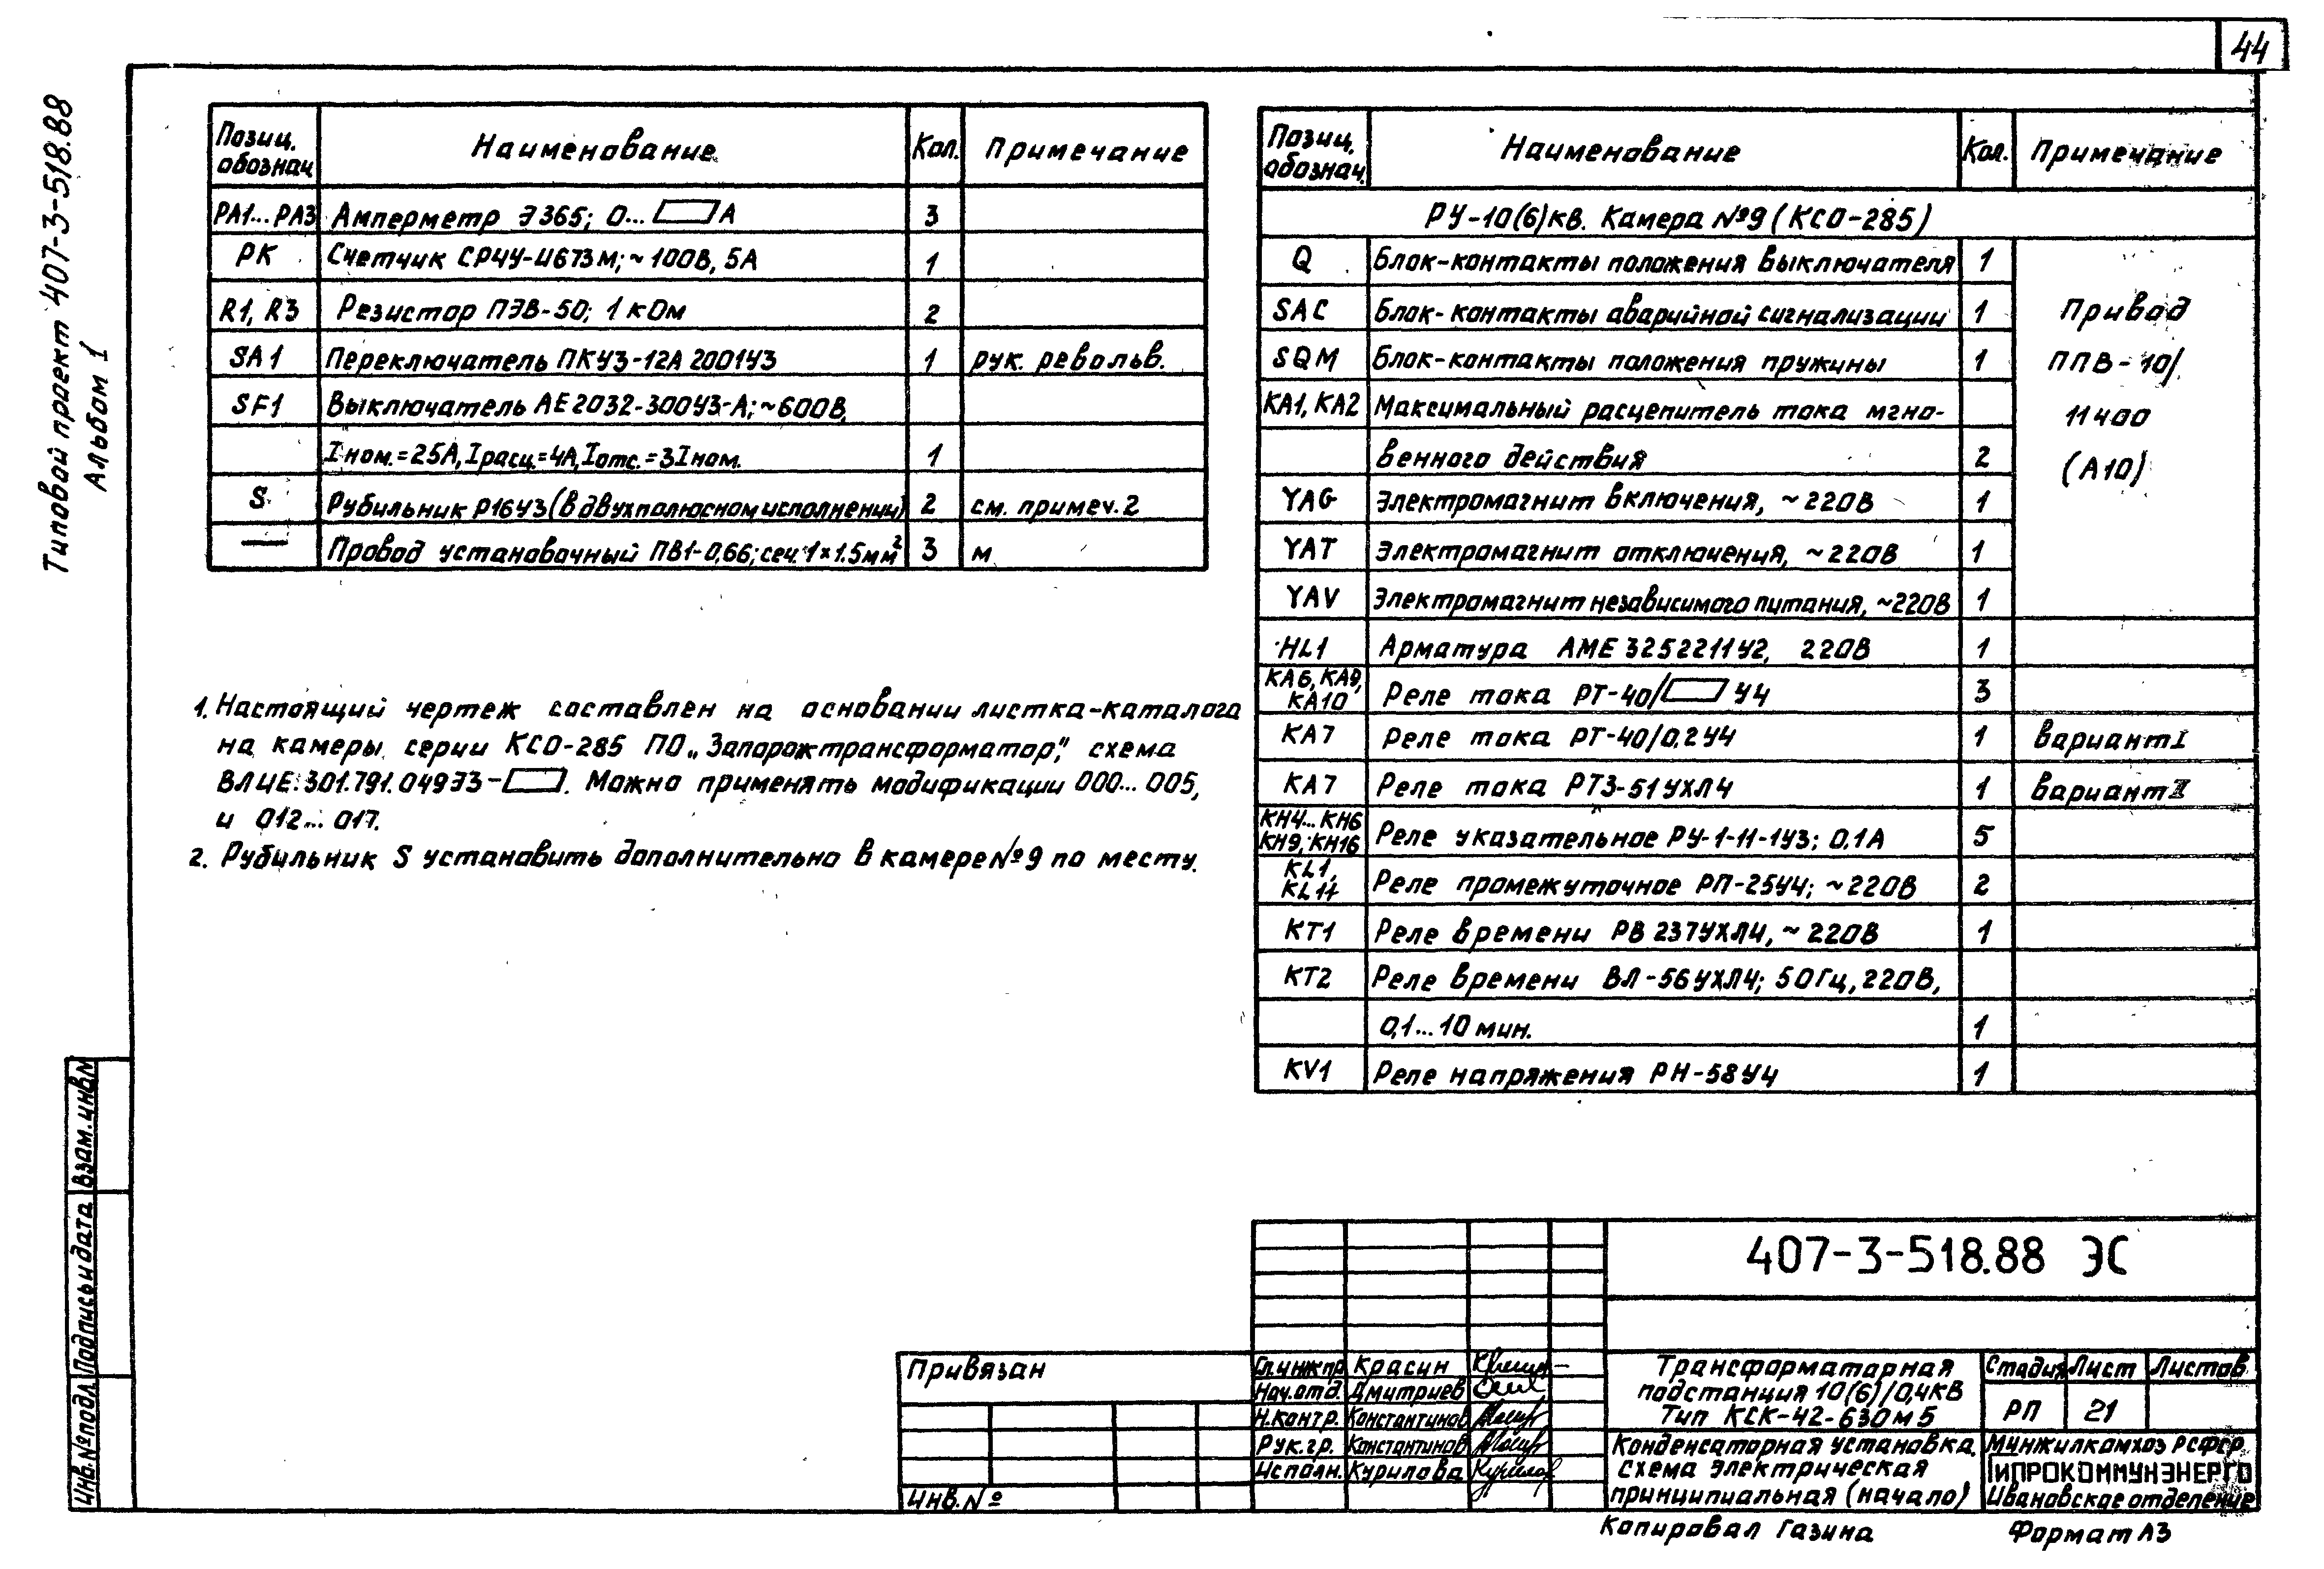 44
Типовой проект 407-3-518.88
Альбом 1
Позиц. обознач. Наименование Кол. Примечание
PA1...PA3 Амперметр Э365; 0... А 3
PK Счетчик СР4У-И673М; ~100В, 5А 1
R1, R3 Резистор ПЭВ-50; 1 кОм 2
SA1 Переключатель ПКУ3-12А 2001У3 1 рук. револьв.
SF1 Выключатель АЕ2032-300У3-А; ~600В,
Iном.=25А, Iрасц.=4А, Iотс.=3Iном. 1
S Рубильник Р16У3 (в двухполюсном исполнении) 2 см. примеч. 2
— Провод установочный ПВ1-0,66; сеч. 1×1.5мм² 3 м
1. Настоящий чертеж составлен на основании листка-каталога
на камеры серии КСО-285 ПО „Запорожтрансформатор", схема
ВЛИЕ.301.791.049Э3- . Можно применять модификации 000... 005,
и 012... 017.
2. Рубильник S установить дополнительно в камере №9 по месту.
Позиц. обознач. Наименование Кол. Примечание
РУ-10(6)кВ. Камера №9 (КСО-285)
Q Блок-контакты положения выключателя 1
SAC Блок-контакты аварийной сигнализации 1 Привод
SQM Блок-контакты положения пружины 1 ППВ-10/
KA1, KA2 Максимальный расцепитель тока мгно- 11400
венного действия 2 (А10)
YAG Электромагнит включения, ~220В 1
YAT Электромагнит отключения, ~220В 1
YAV Электромагнит независимого питания, ~220В 1
HL1 Арматура АМЕ 325221 1У2, 220В 1
KA6, KA9, KA10 Реле тока РТ-40/ У4 3
KA7 Реле тока РТ-40/0,2У4 1 вариант I
KA7 Реле тока РТЗ-51УХЛ4 1 вариант II
KH4...KH6 KH9; KH16 Реле указательное РУ-1-11-1У3; 0.1А 5
KL1, KL11 Реле промежуточное РП-25У4; ~220В 2
KT1 Реле времени РВ 237УХЛ4, ~220В 1
KT2 Реле времени ВЛ-56УХЛ4; 50Гц, 220В,
0,1...10 мин. 1
KV1 Реле напряжения РН-58У4 1
Взам. инв.№
Подпись и дата
Инв.№ подл.
Привязан
Инв.№
407-3-518.88 ЭС
Гл.инж.пр Красин
Нач.отд. Дмитриев
Н.контр. Константинов
Рук.гр. Константинов
Исполн. Курилова
Трансформаторная
подстанция 10(6)/0,4кВ
Тип КСК-42-630м5
Стадия Лист Листов
РП 21
Конденсаторная установка.
Схема электрическая
принципиальная (начало)
Минжилкомхоз РСФСР
ГИПРОКОММУНЭНЕРГО
Ивановское отделение
Копировал Газина Формат А3